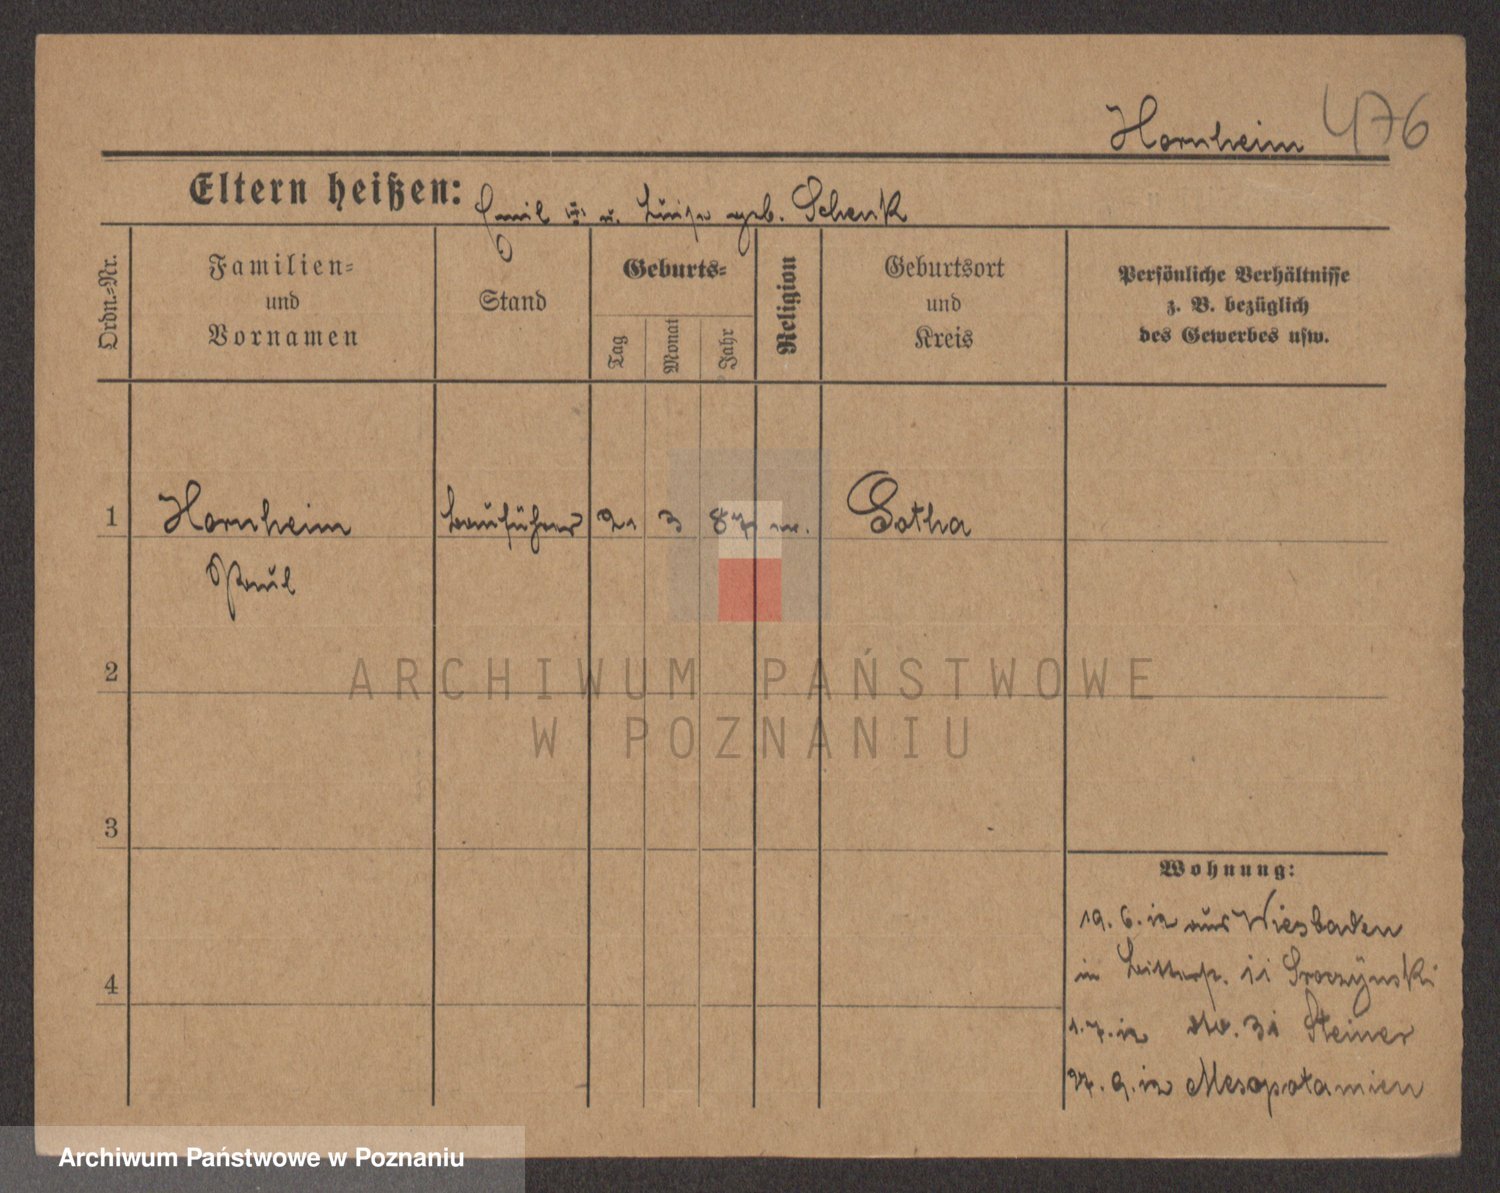 Hornheim 476
Eltern heißen: Emil u. Luise geb. Schenk
Ordn.-Nr.
Familien-
und
Vornamen
Stand
Geburts-
Tag
Monat
Jahr
Religion
Geburtsort
und
Kreis
Persönliche Verhältnisse
z. B. bezüglich
des Gewerbes usw.
1 Hornheim Bauführer 21 3 87 ev. Gotha
Paul
2
3
4
Wohnung:
19. 6. 12 aus Wiesbaden
in Ritterstr. 11 Sroczynski
1. 7. 12 do. 31 Steiner
27. 9. 12 Mesopotamien
ARCHIWUM PAŃSTWOWE
W POZNANIU
Archiwum Państwowe w Poznaniu